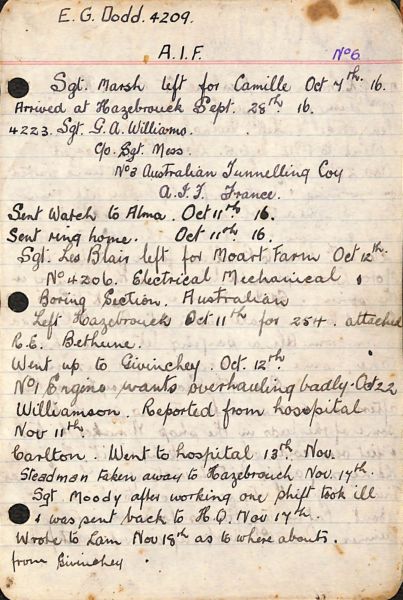 E. G. Dodd. 4209.
A.I.F.
No 6
Sgt. Marsh left for Camille Oct 7th. 16.
Arrived at Hazebrouck Sept. 28th 16.
4223. Sgt. G. A. Williams.
C/o. Sgt. Mess.
No 3 Australian Tunnelling Coy
A.I.F. France.
Sent Watch to Alma. Oct 11th 16.
Sent ring home. Oct 11th 16.
Sgt. Les Blair left for Moart Farm Oct 12th.
No 4206. Electrical Mechanical
Boring Section. Australian
Left Hazebrouck Oct 11th for 254. attached
R.E. Bethune.
Went up to Givinchey. Oct. 12th.
No 1 Engine wants overhauling badly. Oct 22
Williamson. Reported from hospital
Nov 11th.
Carlton. Went to hospital 13th. Nov.
Steadman taken away to Hazebrouch Nov. 17th.
Sgt Moody after working one shift took ill
& was sent back to H.Q. Nov 17th.
Wrote to Lam Nov 18th as to where abouts.
from Givinchey